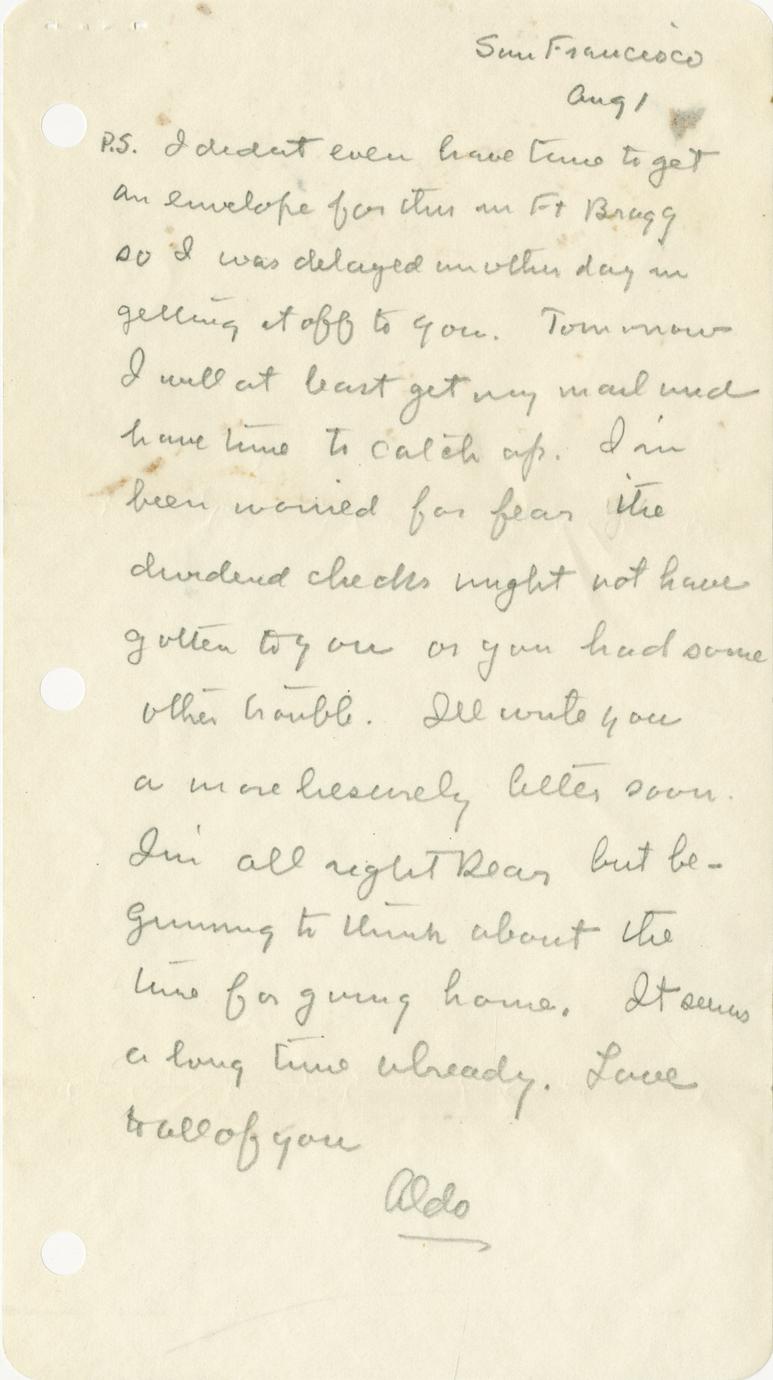 San Francisco
Aug 1
P.S. I didn't even have time to get
an envelope for this in Ft Bragg
so I was delayed another day in
getting it off to you. Tomorrow
I will at least get my mail and
have time to catch up. I'm
been worried for fear the
dividend checks might not have
gotten to you or you had some
other trouble. I'll write you
a more liesurely letter soon.
I'm all right Dear but be-
ginning to think about the
time for going home. It seems
a long time already. Love
to all of you
Aldo